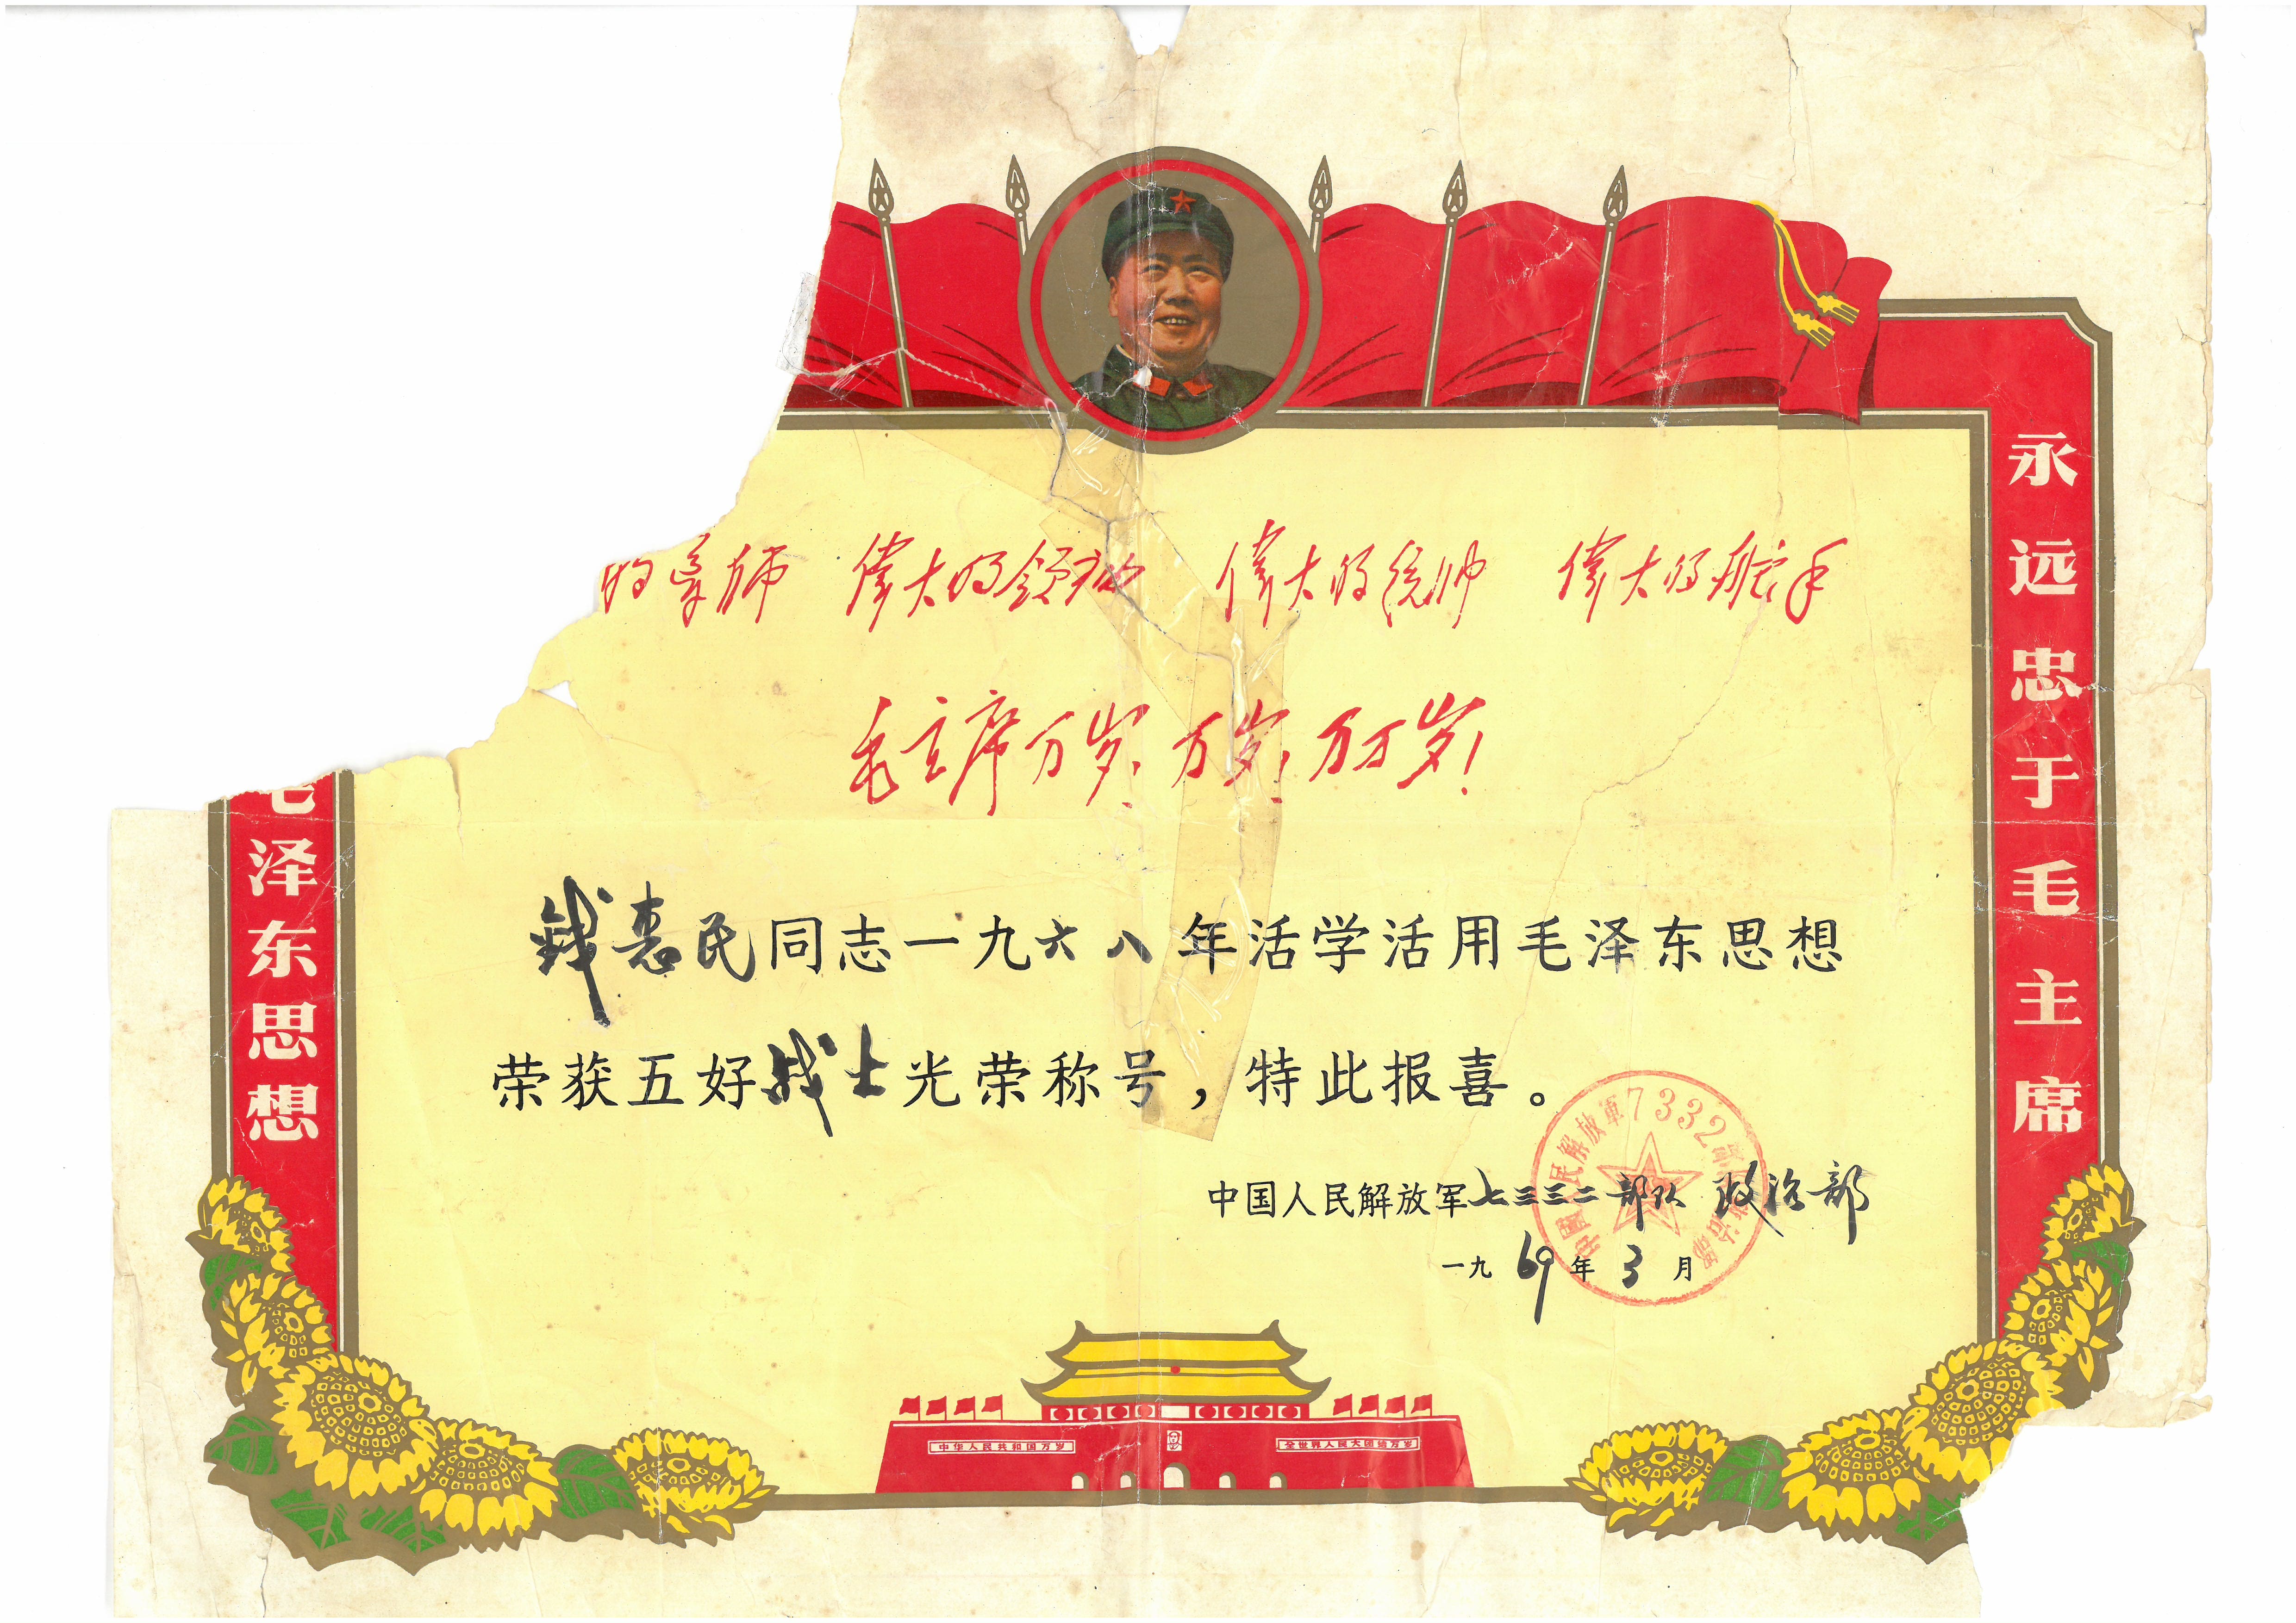 的导师 偉大的领袖 偉大的统帅 偉大的舵手
毛主席万岁!万岁!万万岁!
永远忠于毛主席
泽东思想
钱惠民同志一九六八年活学活用毛泽东思想
荣获五好战士光荣称号，特此报喜。
中国人民解放军七三三二部队 政治部
一九69年3月
中國人民解放軍7332部隊政治部
中华人民共和国万岁
全世界人民大团结万岁